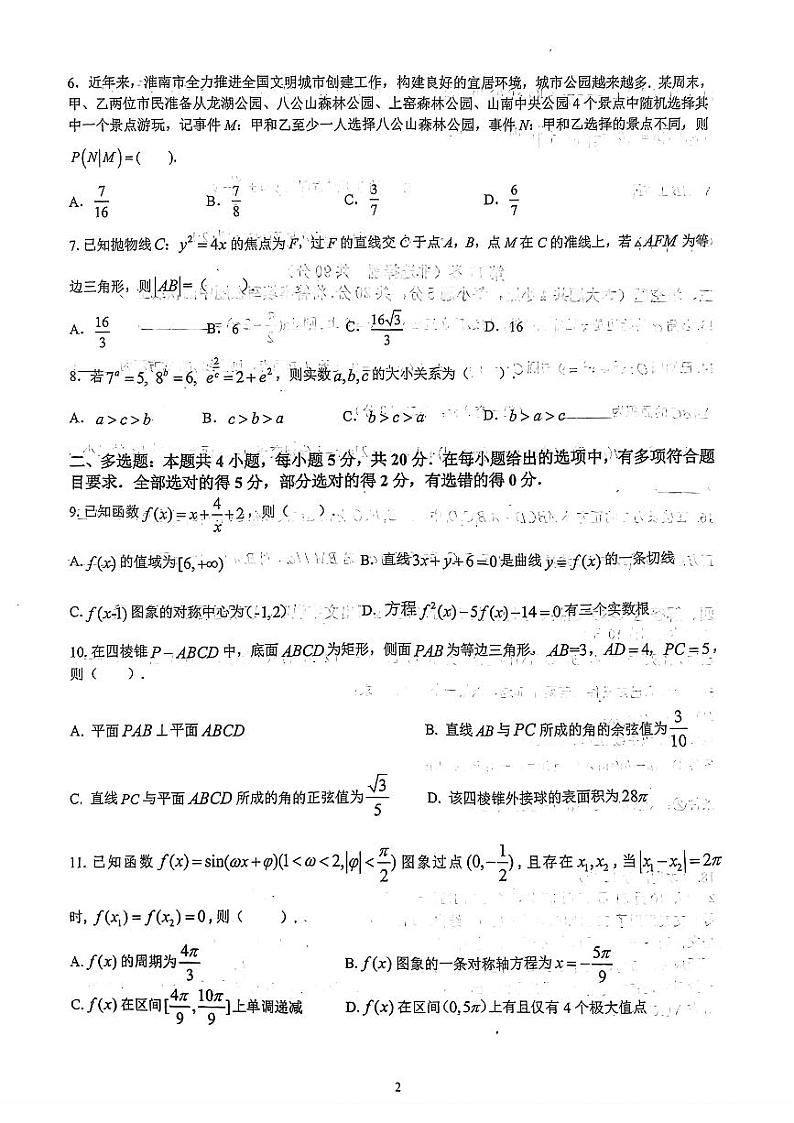 6. 近年来，淮南市全力推进全国文明城市创建工作，构建良好的宜居环境，城市公园越来越多. 某周末，
甲、乙两位市民准备从龙湖公园、八公山森林公园、上窑森林公园、山南中央公园 4 个景点中随机选择其
中一个景点游玩，记事件 M：甲和乙至少一人选择八公山森林公园，事件 N：甲和乙选择的景点不同，则
P(N|M)=(  ).
A. 7/16 B. 7/8 C. 3/7 D. 6/7
7. 已知抛物线 C：y²=4x 的焦点为 F，过 F 的直线交 C 于点 A，B，点 M 在 C 的准线上，若△AFM 为等
边三角形，则|AB|=（  ）.
A. 16/3 B. 6 C. 16√3/3 D. 16
8. 若 7^a=5, 8^b=6, e^(2/c)=2+e²，则实数 a,b,c 的大小关系为（  ）.
A. a>c>b B. c>b>a C. b>c>a D. b>a>c
二、多选题：本题共 4 小题，每小题 5 分，共 20 分．在每小题给出的选项中，有多项符合题
目要求．全部选对的得 5 分，部分选对的得 2 分，有选错的得 0 分．
9. 已知函数 f(x)=x+4/x+2，则（  ）.
A. f(x) 的值域为[6,+∞) B. 直线3x+y+6=0是曲线 y=f(x) 的一条切线
C. f(x-1) 图象的对称中心为(-1,2) D. 方程 f²(x)-5f(x)-14=0有三个实数根
10. 在四棱锥 P-ABCD 中，底面 ABCD 为矩形，侧面 PAB 为等边三角形，AB=3，AD=4，PC=5，
则（  ）.
A. 平面 PAB⊥平面 ABCD B. 直线 AB 与 PC 所成的角的余弦值为 3/10
C. 直线 PC 与平面 ABCD 所成的角的正弦值为 √3/5 D. 该四棱锥外接球的表面积为 28π
11. 已知函数 f(x)=sin(ωx+φ)(1<ω<2,|φ|<π/2) 图象过点 (0,-1/2)，且存在 x₁,x₂，当 |x₁-x₂|=2π
时，f(x₁)=f(x₂)=0，则（  ）.
A. f(x) 的周期为 4π/3 B. f(x) 图象的一条对称轴方程为 x=-5π/9
C. f(x) 在区间[4π/9,10π/9]上单调递减 D. f(x) 在区间(0,5π)上有且仅有 4 个极大值点
2